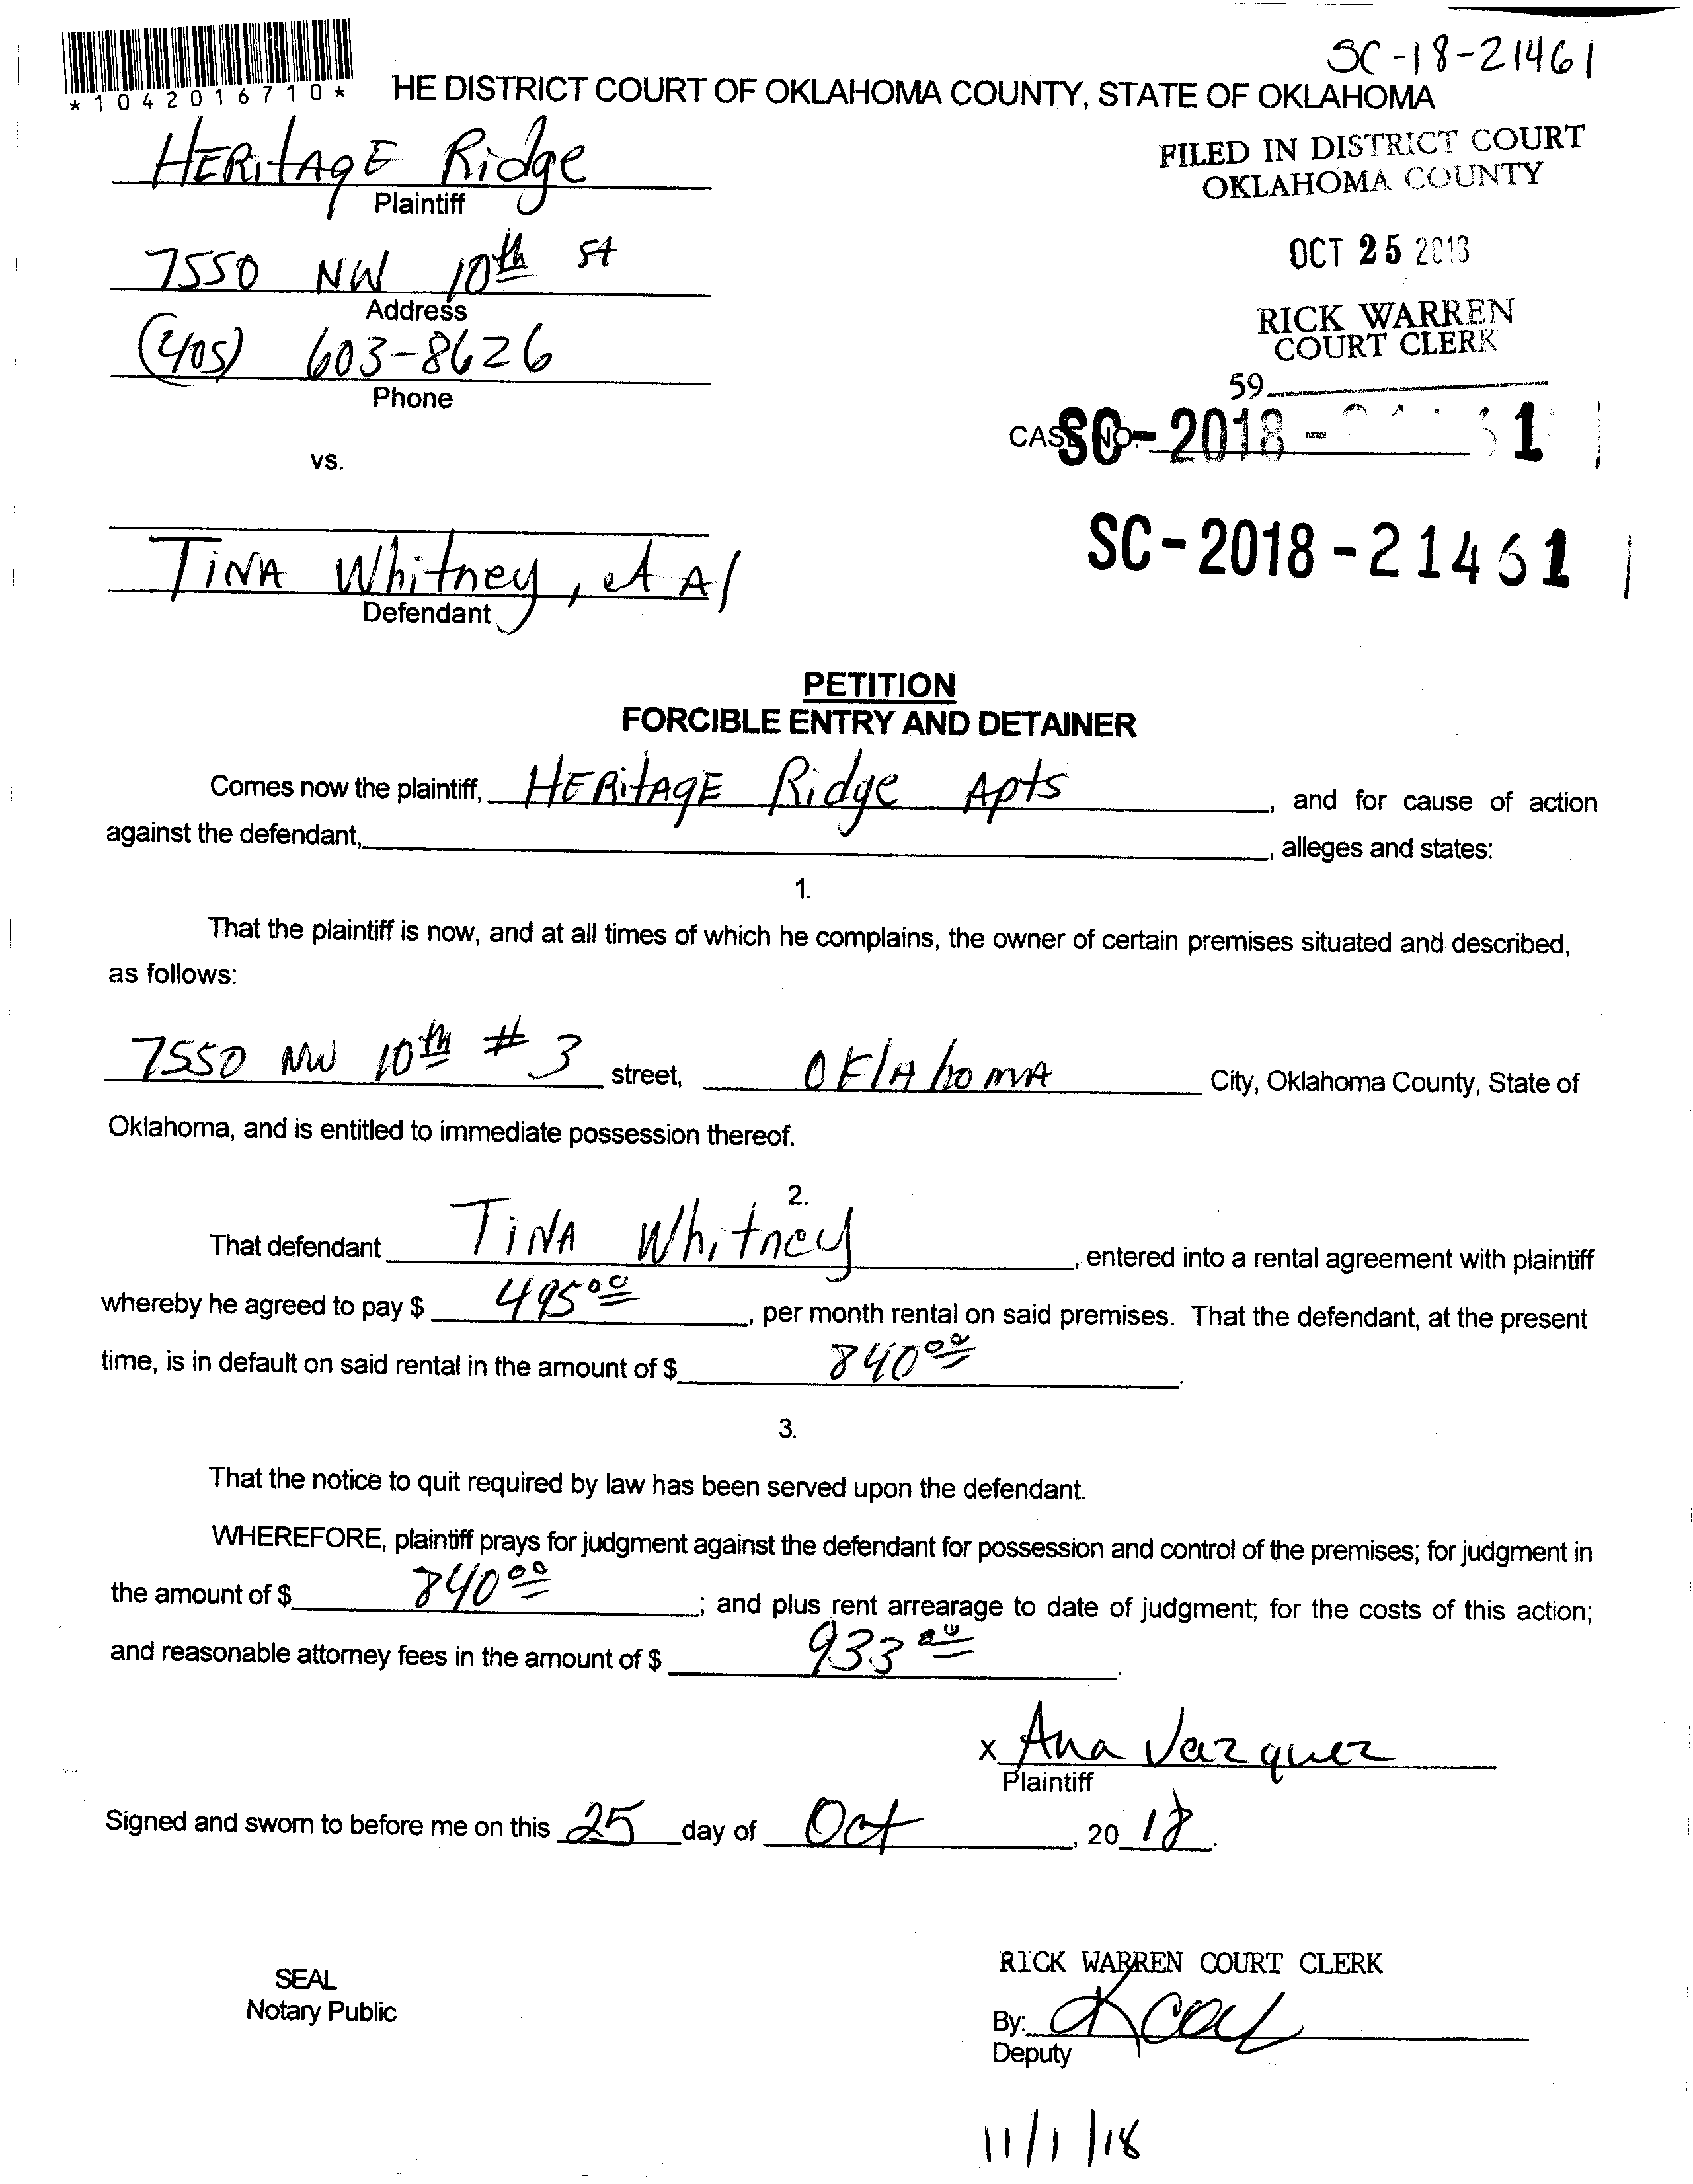 SC-18-21461
*1042016710*
HE DISTRICT COURT OF OKLAHOMA COUNTY, STATE OF OKLAHOMA
HERitAgE Ridge
Plaintiff
FILED IN DISTRICT COURT
OKLAHOMA COUNTY
7550 NW 10th St
Address
OCT 25 2018
(405) 603-8626
Phone
RICK WARREN
COURT CLERK
59
CASE NO. SC-2018-
vs.
SC-2018-21461
TiNA Whitney, et Al
Defendant
PETITION
FORCIBLE ENTRY AND DETAINER
Comes now the plaintiff, HERitAgE Ridge Apts, and for cause of action
against the defendant, , alleges and states:
1.
That the plaintiff is now, and at all times of which he complains, the owner of certain premises situated and described,
as follows:
7550 NW 10th # 3 street, OKlAhomA City, Oklahoma County, State of
Oklahoma, and is entitled to immediate possession thereof.
2.
That defendant TiNA Whitney, entered into a rental agreement with plaintiff
whereby he agreed to pay $ 495 00, per month rental on said premises. That the defendant, at the present
time, is in default on said rental in the amount of $ 840 00.
3.
That the notice to quit required by law has been served upon the defendant.
WHEREFORE, plaintiff prays for judgment against the defendant for possession and control of the premises; for judgment in
the amount of $ 840 00; and plus rent arrearage to date of judgment; for the costs of this action;
and reasonable attorney fees in the amount of $ 933 00.
x Ana Vazquez
Plaintiff
Signed and sworn to before me on this 25 day of Oct, 2018.
SEAL
Notary Public
RICK WARREN COURT CLERK
By:
Deputy
11/1/18